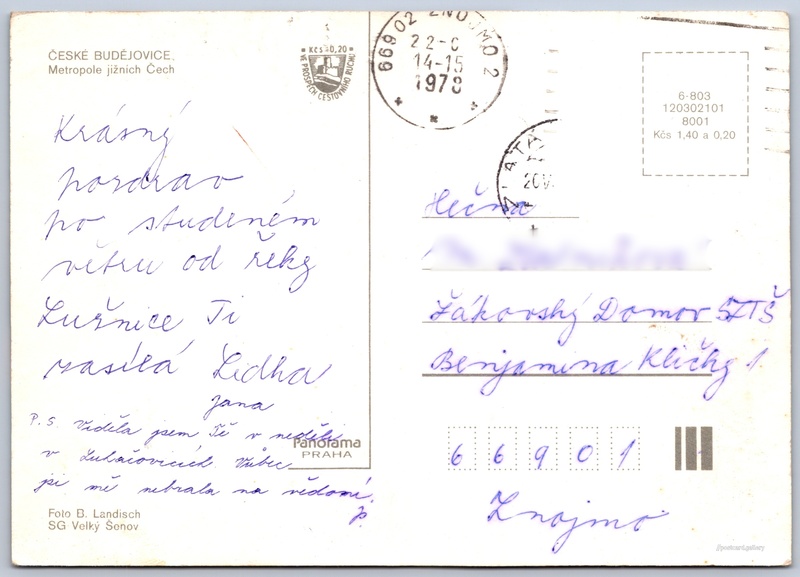 ČESKÉ BUDĚJOVICE,
Metropole jižních Čech
Kčs +0,20
VE PROSPĚCH CESTOVNÍHO RUCHU
669 02 ZNOJMO 2
14-15
1978
6-803
120302101
8001
Kčs 1,40 a 0,20
Krásný
pozdrav
po studeném
větru od řeky
Lužnice Ti
zasílá
Jana
P.S. Viděla jsem Tě v neděli
v Luhačovicích. Vůbec
jsi mě nebrala na vědomí.
Slečna
Žákovský Domov SZTŠ
Benjamina Kličky 1
66901
Znojmo
Panorama
PRAHA
Foto B. Landisch
SG Velký Šenov